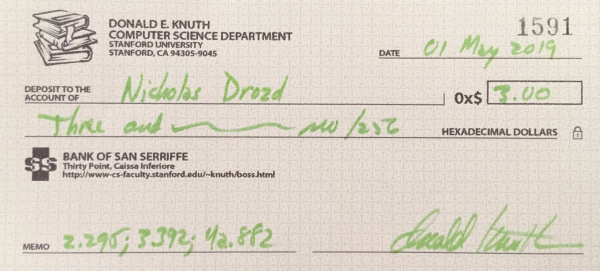 DONALD E. KNUTH
COMPUTER SCIENCE DEPARTMENT
STANFORD UNIVERSITY
STANFORD, CA 94305-9045
1591
DATE 01 May 2019
DEPOSIT TO THE ACCOUNT OF Nicholas Drozd 0x$ 3.00
Three and no/256 HEXADECIMAL DOLLARS
BANK OF SAN SERRIFFE
Thirty Point, Caissa Inferiore
http://www-cs-faculty.stanford.edu/~knuth/boss.html
MEMO 2.295; 3.392; 4a.882 Donald Knuth